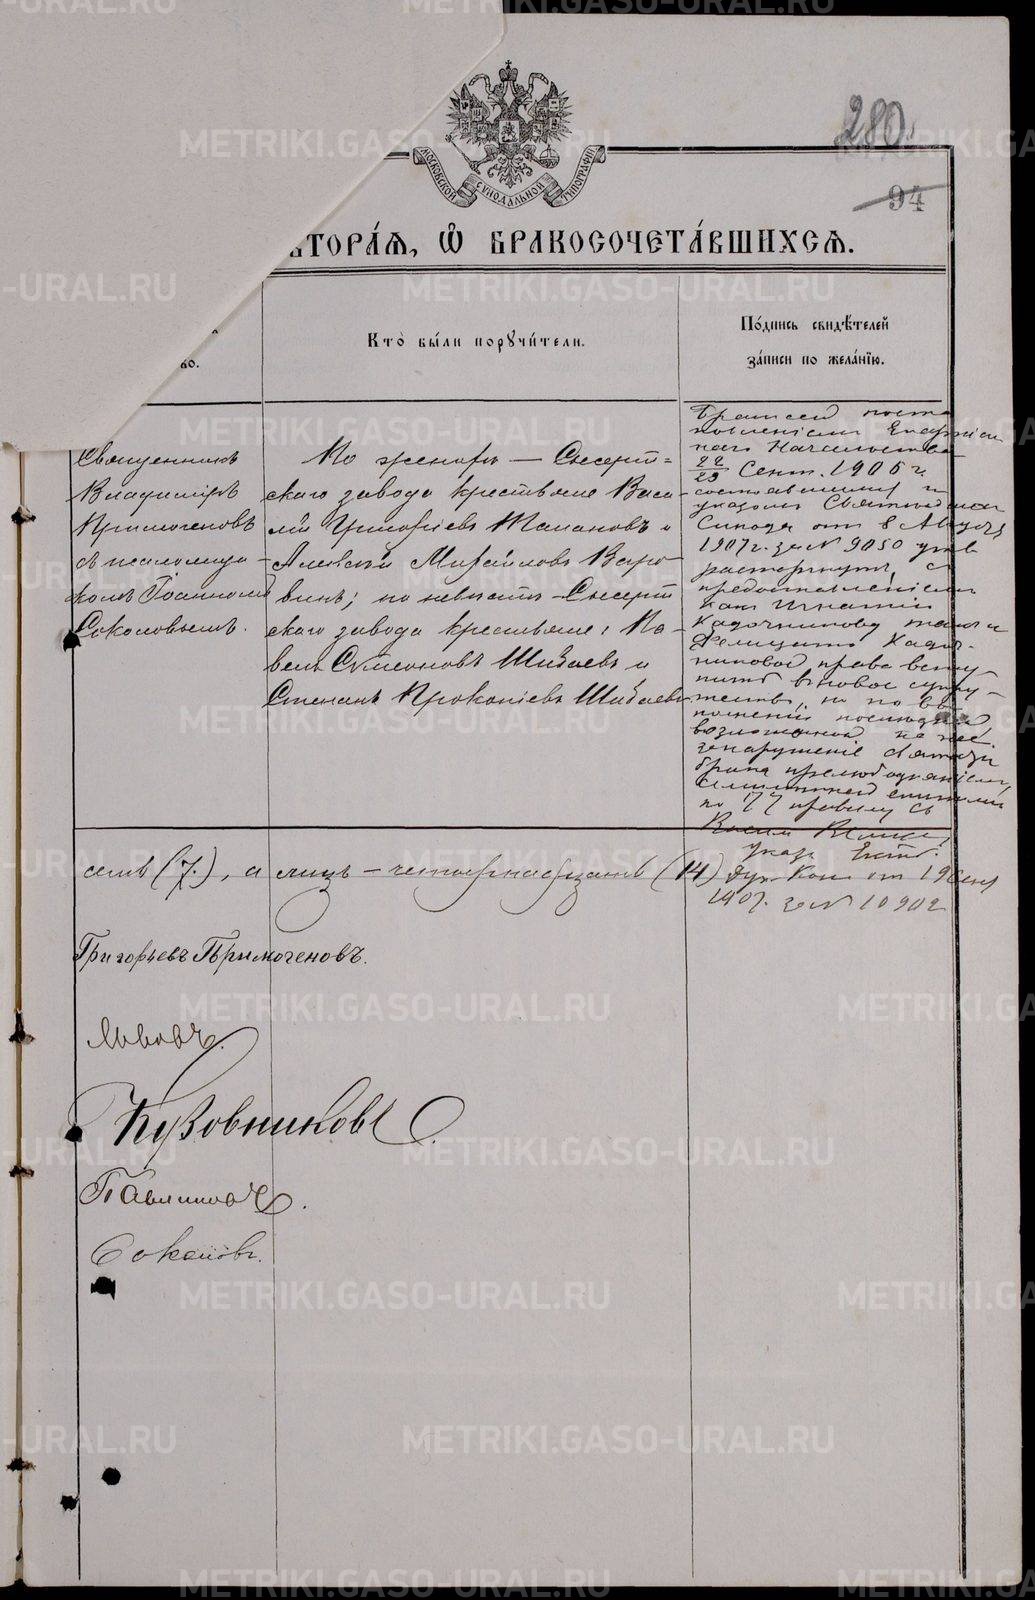 METRIKI.GASO-URAL.RU
280.
94
МОСКОВСКОЙ СѴНОДАЛЬНОЙ ТИПОГРАФІИ
ВТОРА́Я, Ѡ БРАКОСОЧЕТА́ВШИХСЯ.
Кто̀ бы́ли порꙋчи́тели.
По́дпись свидѣ́телей
за́писи по жела́нїю.
Священникъ
Владиміръ
Примогеновъ
съ псаломщи-
комъ Іоанномъ
Соколовымъ.
По женихѣ – Сысерт-
скаго завода крестьяне Васи-
лій Григоріевъ Талановъ и
Алексѣй Михайловъ Варо-
винъ; по невѣстѣ – Сысерт
скаго завода крестьяне: Па-
велъ Сѵмеоновъ Шибаевъ и
Степанъ Прокопіевъ Шибаевъ.
Бракъ сей поста
новленіемъ Епархіал
наго Начальства
22/23 Сент. 1906 г.
состоявшимся и
указомъ Святѣйшаго
Сѵнода отъ 8 Августа
1907 г. за № 9050
расторгнутъ, съ
предоставленіемъ
какъ Игнатію
Кадочникову такъ и
Кадоч-
никовой права всту-
пить въ новое супру-
жество, но по
послѣдней
возложенной на нее
за нарушеніе святости
брака прелюбодѣяніемъ,
семилѣтней епитиміи
по 77 правилу Св.
Васил. Велик.,
указ. Екат.
Дух. Конс. от 19 Сент
1907. за № 10902
семь (7.), а лицъ – четырнадцать (14)
Григорьевъ Примогеновъ.
Львовъ.
Кузовниковъ.
Соколовъ.